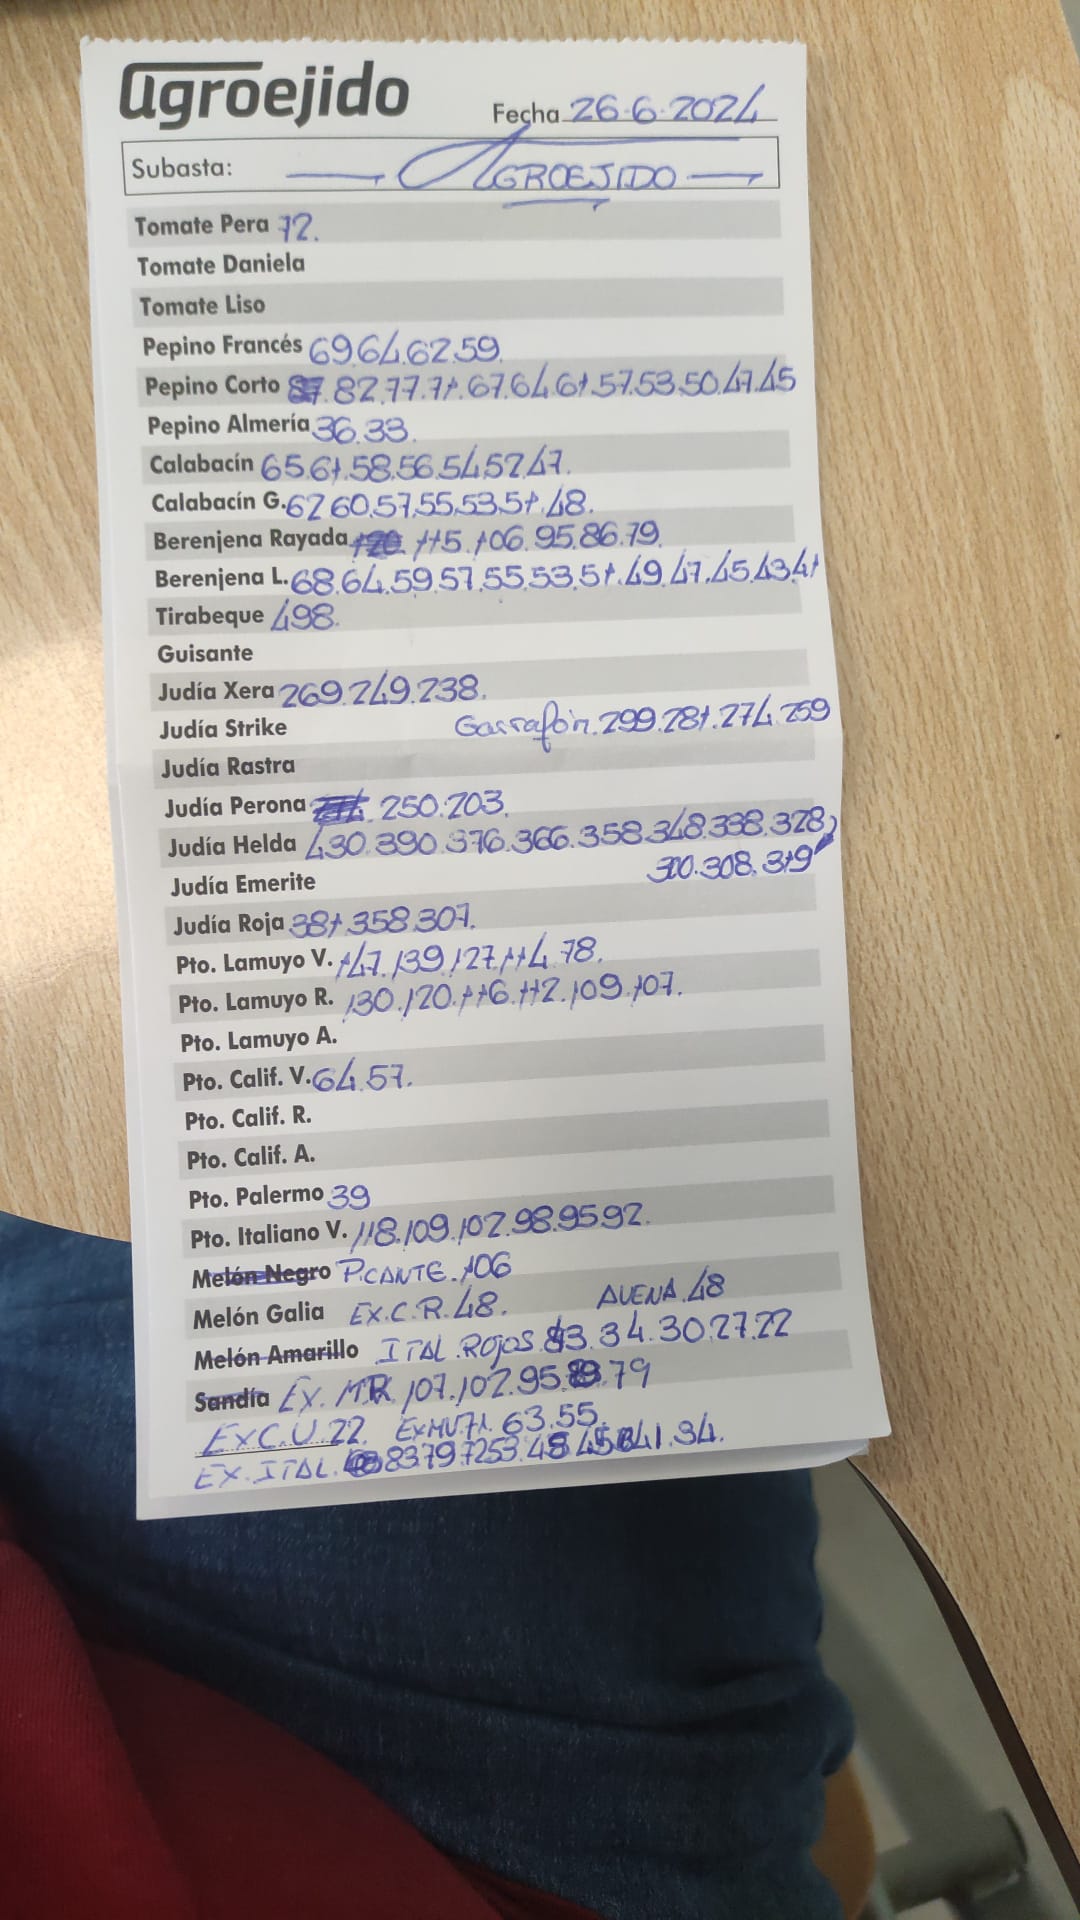 agroejido
Fecha 26-6-2024
Subasta: AGROEJIDO
Tomate Pera 72.
Tomate Daniela
Tomate Liso
Pepino Francés 69.64.62.59.
Pepino Corto 82.77.71.67.64.61.57.53.50.47.45
Pepino Almería 36.33.
Calabacín 65.61.58.56.54.52.47.
Calabacín G. 62.60.57.55.53.51.48.
Berenjena Rayada 115.106.95.86.79.
Berenjena L. 68.64.59.57.55.53.51.49.47.45.43.41
Tirabeque 498.
Guisante
Judía Xera 269.249.238.
Judía Strike Garrafón.299.281.274.259
Judía Rastra
Judía Perona 250.203.
Judía Helda 430.390.376.366.358.348.338.328
300.308.319
Judía Emerite
Judía Roja 381.358.307.
Pto. Lamuyo V. 147.139.127.114.78.
Pto. Lamuyo R. 130.120.116.112.109.107.
Pto. Lamuyo A.
Pto. Calif. V. 64.57.
Pto. Calif. R.
Pto. Calif. A.
Pto. Palermo 39
Pto. Italiano V. 118.109.102.98.95.92.
Melón Negro PICANTE.106
Melón Galia EX.C.R.48. AVENA.48
Melón Amarillo ITAL.ROJOS 34.30.27.22
Sandía EX. 107.102.95. 79
EXC.U.22. EXMU.71.63.55.
EX.ITAL. 83.79.72.53.48 41.34.